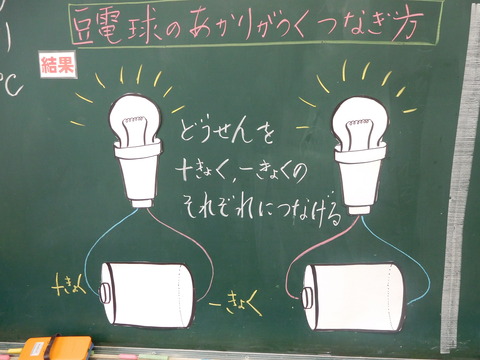 豆電球のあかりがつくつなぎ方
結果
℃
どうせんを
+きょく,-きょくの
それぞれにつなげる
+きょく
-きょく